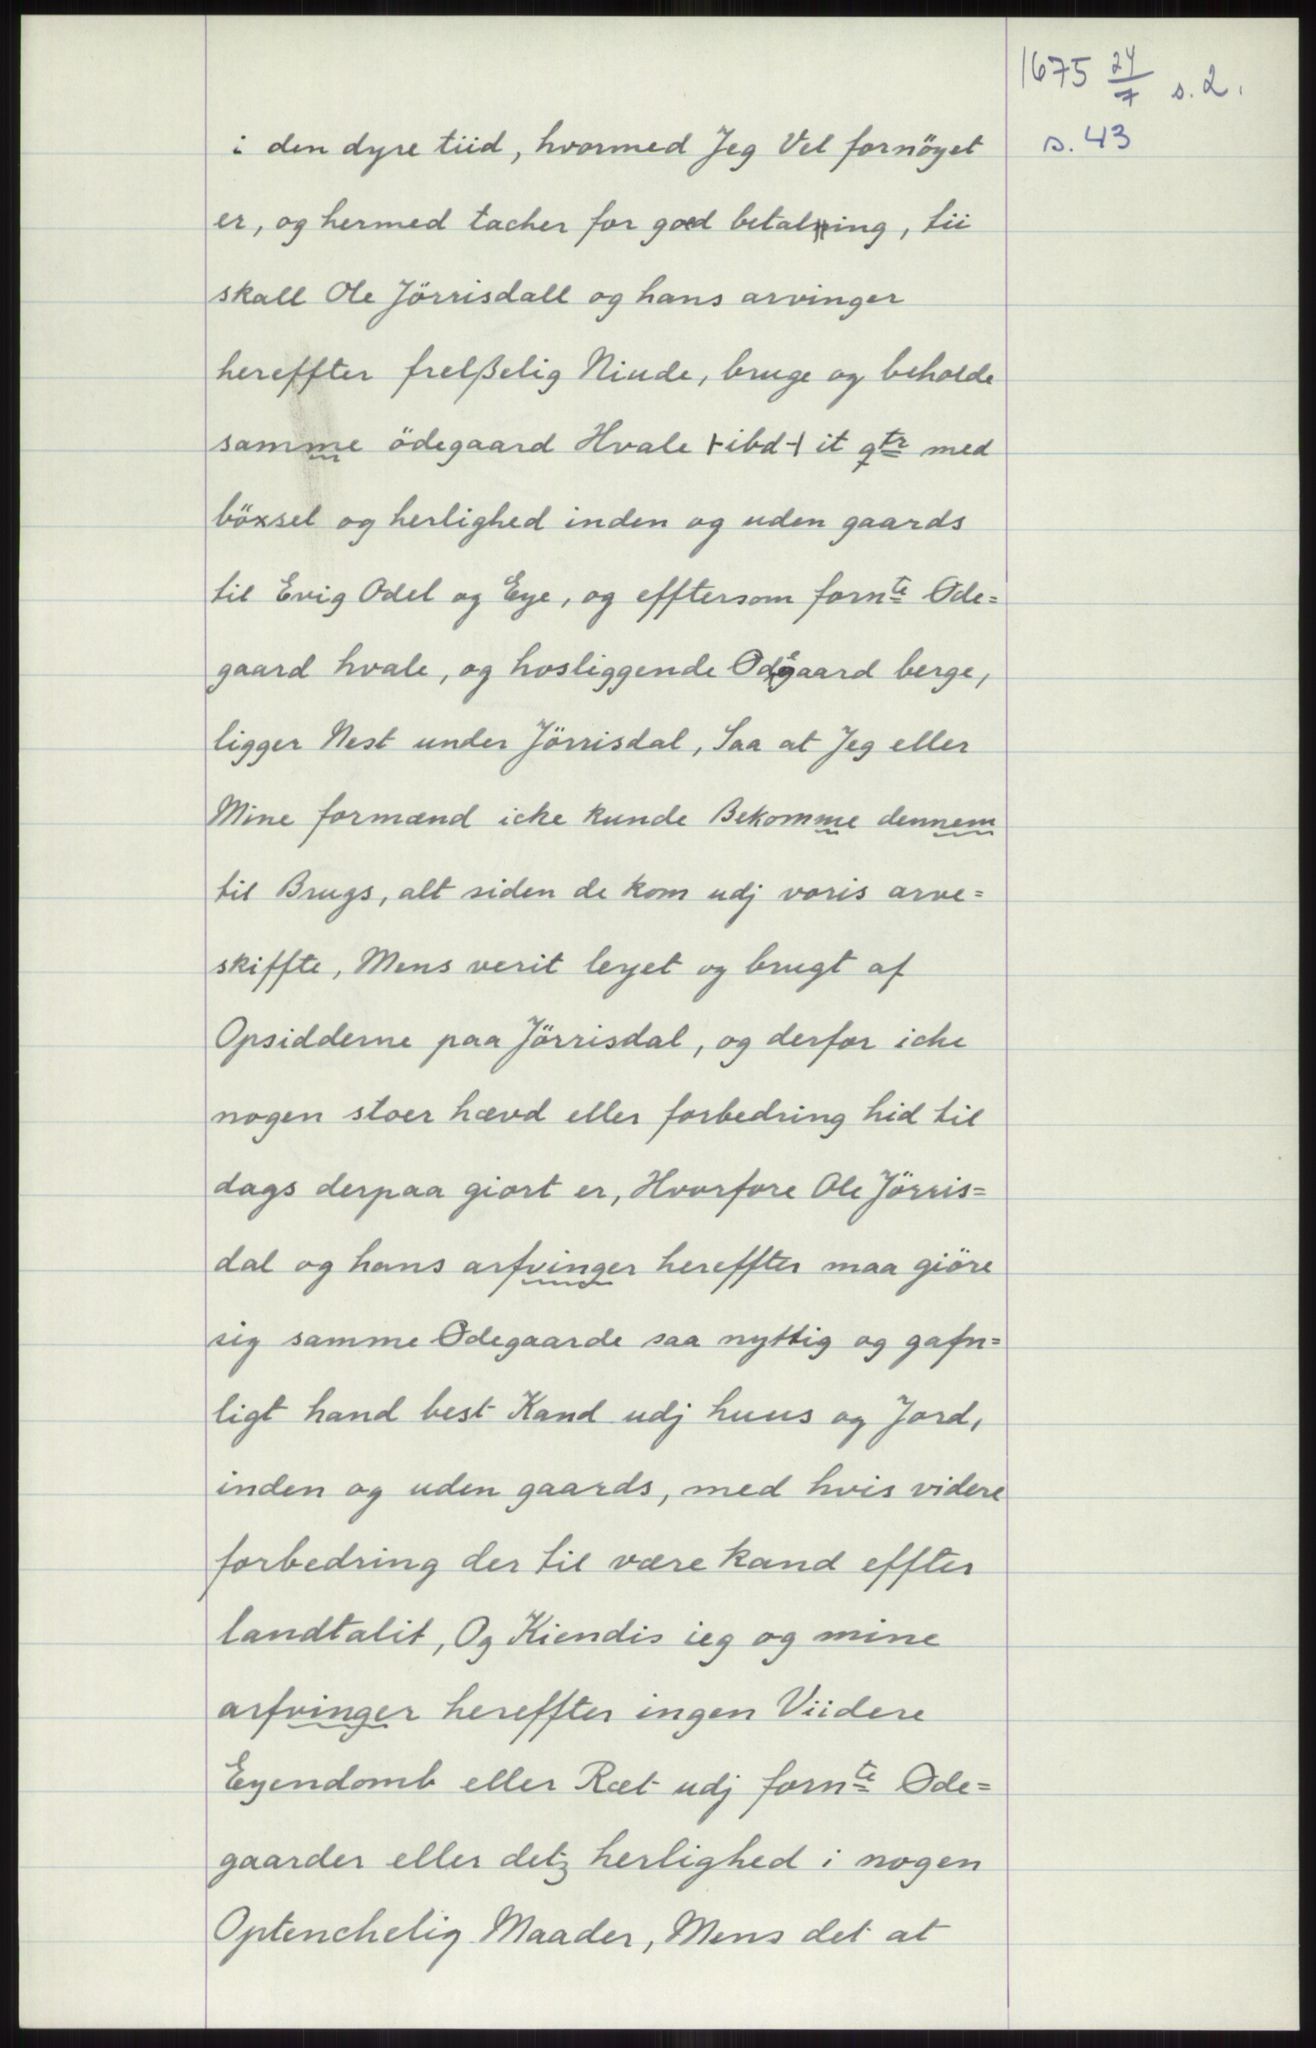 1675 24/7 s. 2.
s. 43
i den dyre tiid, hvormed Jeg Vel fornöyet
er, og hermed tacher for god betaling, tii
skall Ole Jörrisdall og hans arvinger
hereffter frelßelig Niude, bruge og beholde
samme ödegaard Hvale +ibd+ it qtr med
böxsel og herlighed inden og uden gaards
til Evig Odel og Eye, og efftersom fornte Øde=
gaard hvale, og hosliggende Ødegaard berge,
ligger Nest under Jörrisdal, Saa at Jeg eller
Mine formænd icke kunde Bekomme dennem
til Brugs, alt siden de kom udj voris arve=
skiffte, Mens verit leyet og brugt af
Opsidderne paa Jörrisdal, og derfor icke
nogen stoer hævd eller forbedring hid til
dags derpaa giort er, Hvorfore Ole Jörris=
dal og hans arfvinger hereffter maa giöre
sig samme Ødegaarde saa nyttig og gafn=
ligt hand best Kand udj huus og Jord,
inden og uden gaards, med hvis videre
forbedring der til være kand effter
landtalit, Og Kiendis ieg og mine
arfvinger hereffter ingen Viidere
Eyendomb eller Ræt udj fornte Øde=
gaarder eller detz herlighed i nogen
Optenchelig Maader, Mens det at